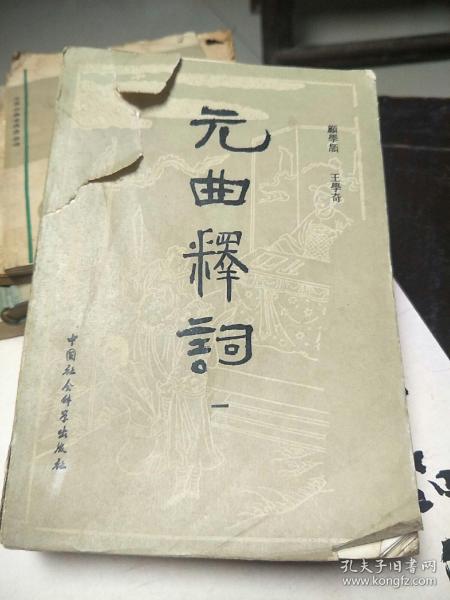 元曲釋詞
一
顧學頡
王學奇
中国社会科学出版社
孔夫子旧书网
www.kongfz.com